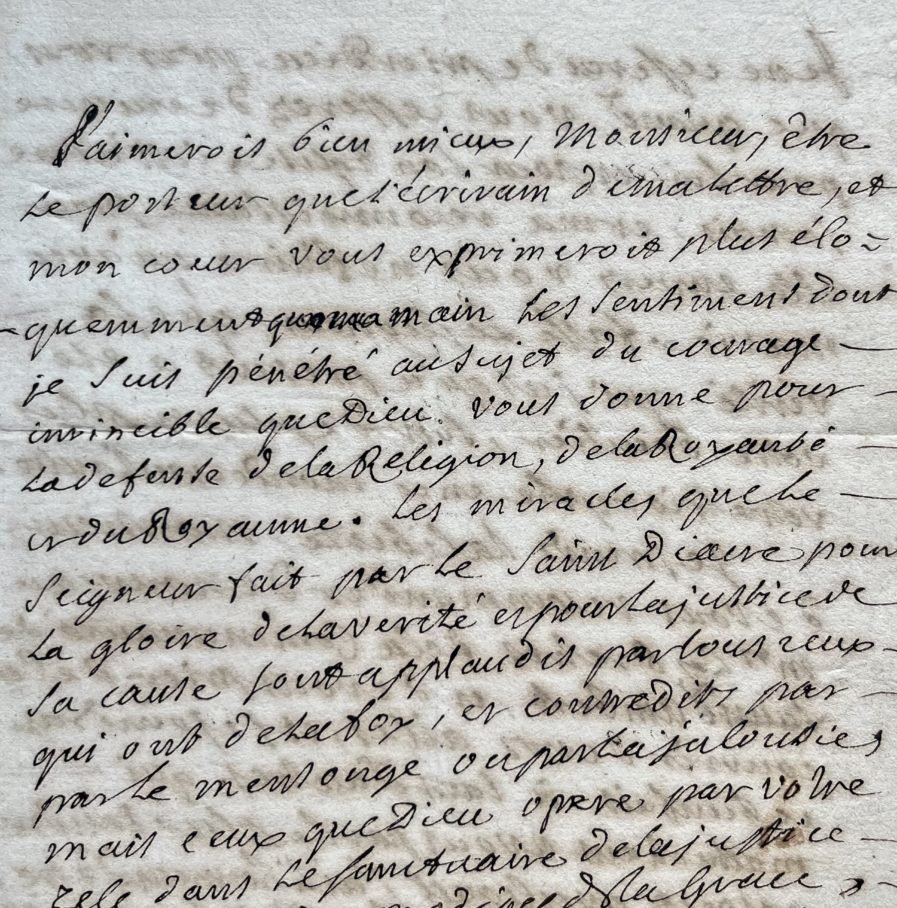 J'aimerois bien mieux, Monsieur, être
Le porteur que L'écrivain de ma Lettre, et
mon coeur vous exprimeroit plus élo=
quemment que ma main Les sentiments dont
je suis pénétré au sujet du courage
invincible que Dieu vous donne pour
La defense de la Religion, de la Royauté
et du Royaume. Les miracles que Le
Seigneur fait par Le Saint Diacre pour
La gloire de La verité et pour La justice de
sa cause sont applaudis par tous ceux
qui ont de La foy, et contredits par
par Le mensonge ou par La jalousie,
mais ceux que Dieu opere par votre
zele dans Le sanctuaire de la justice
de la Grace,